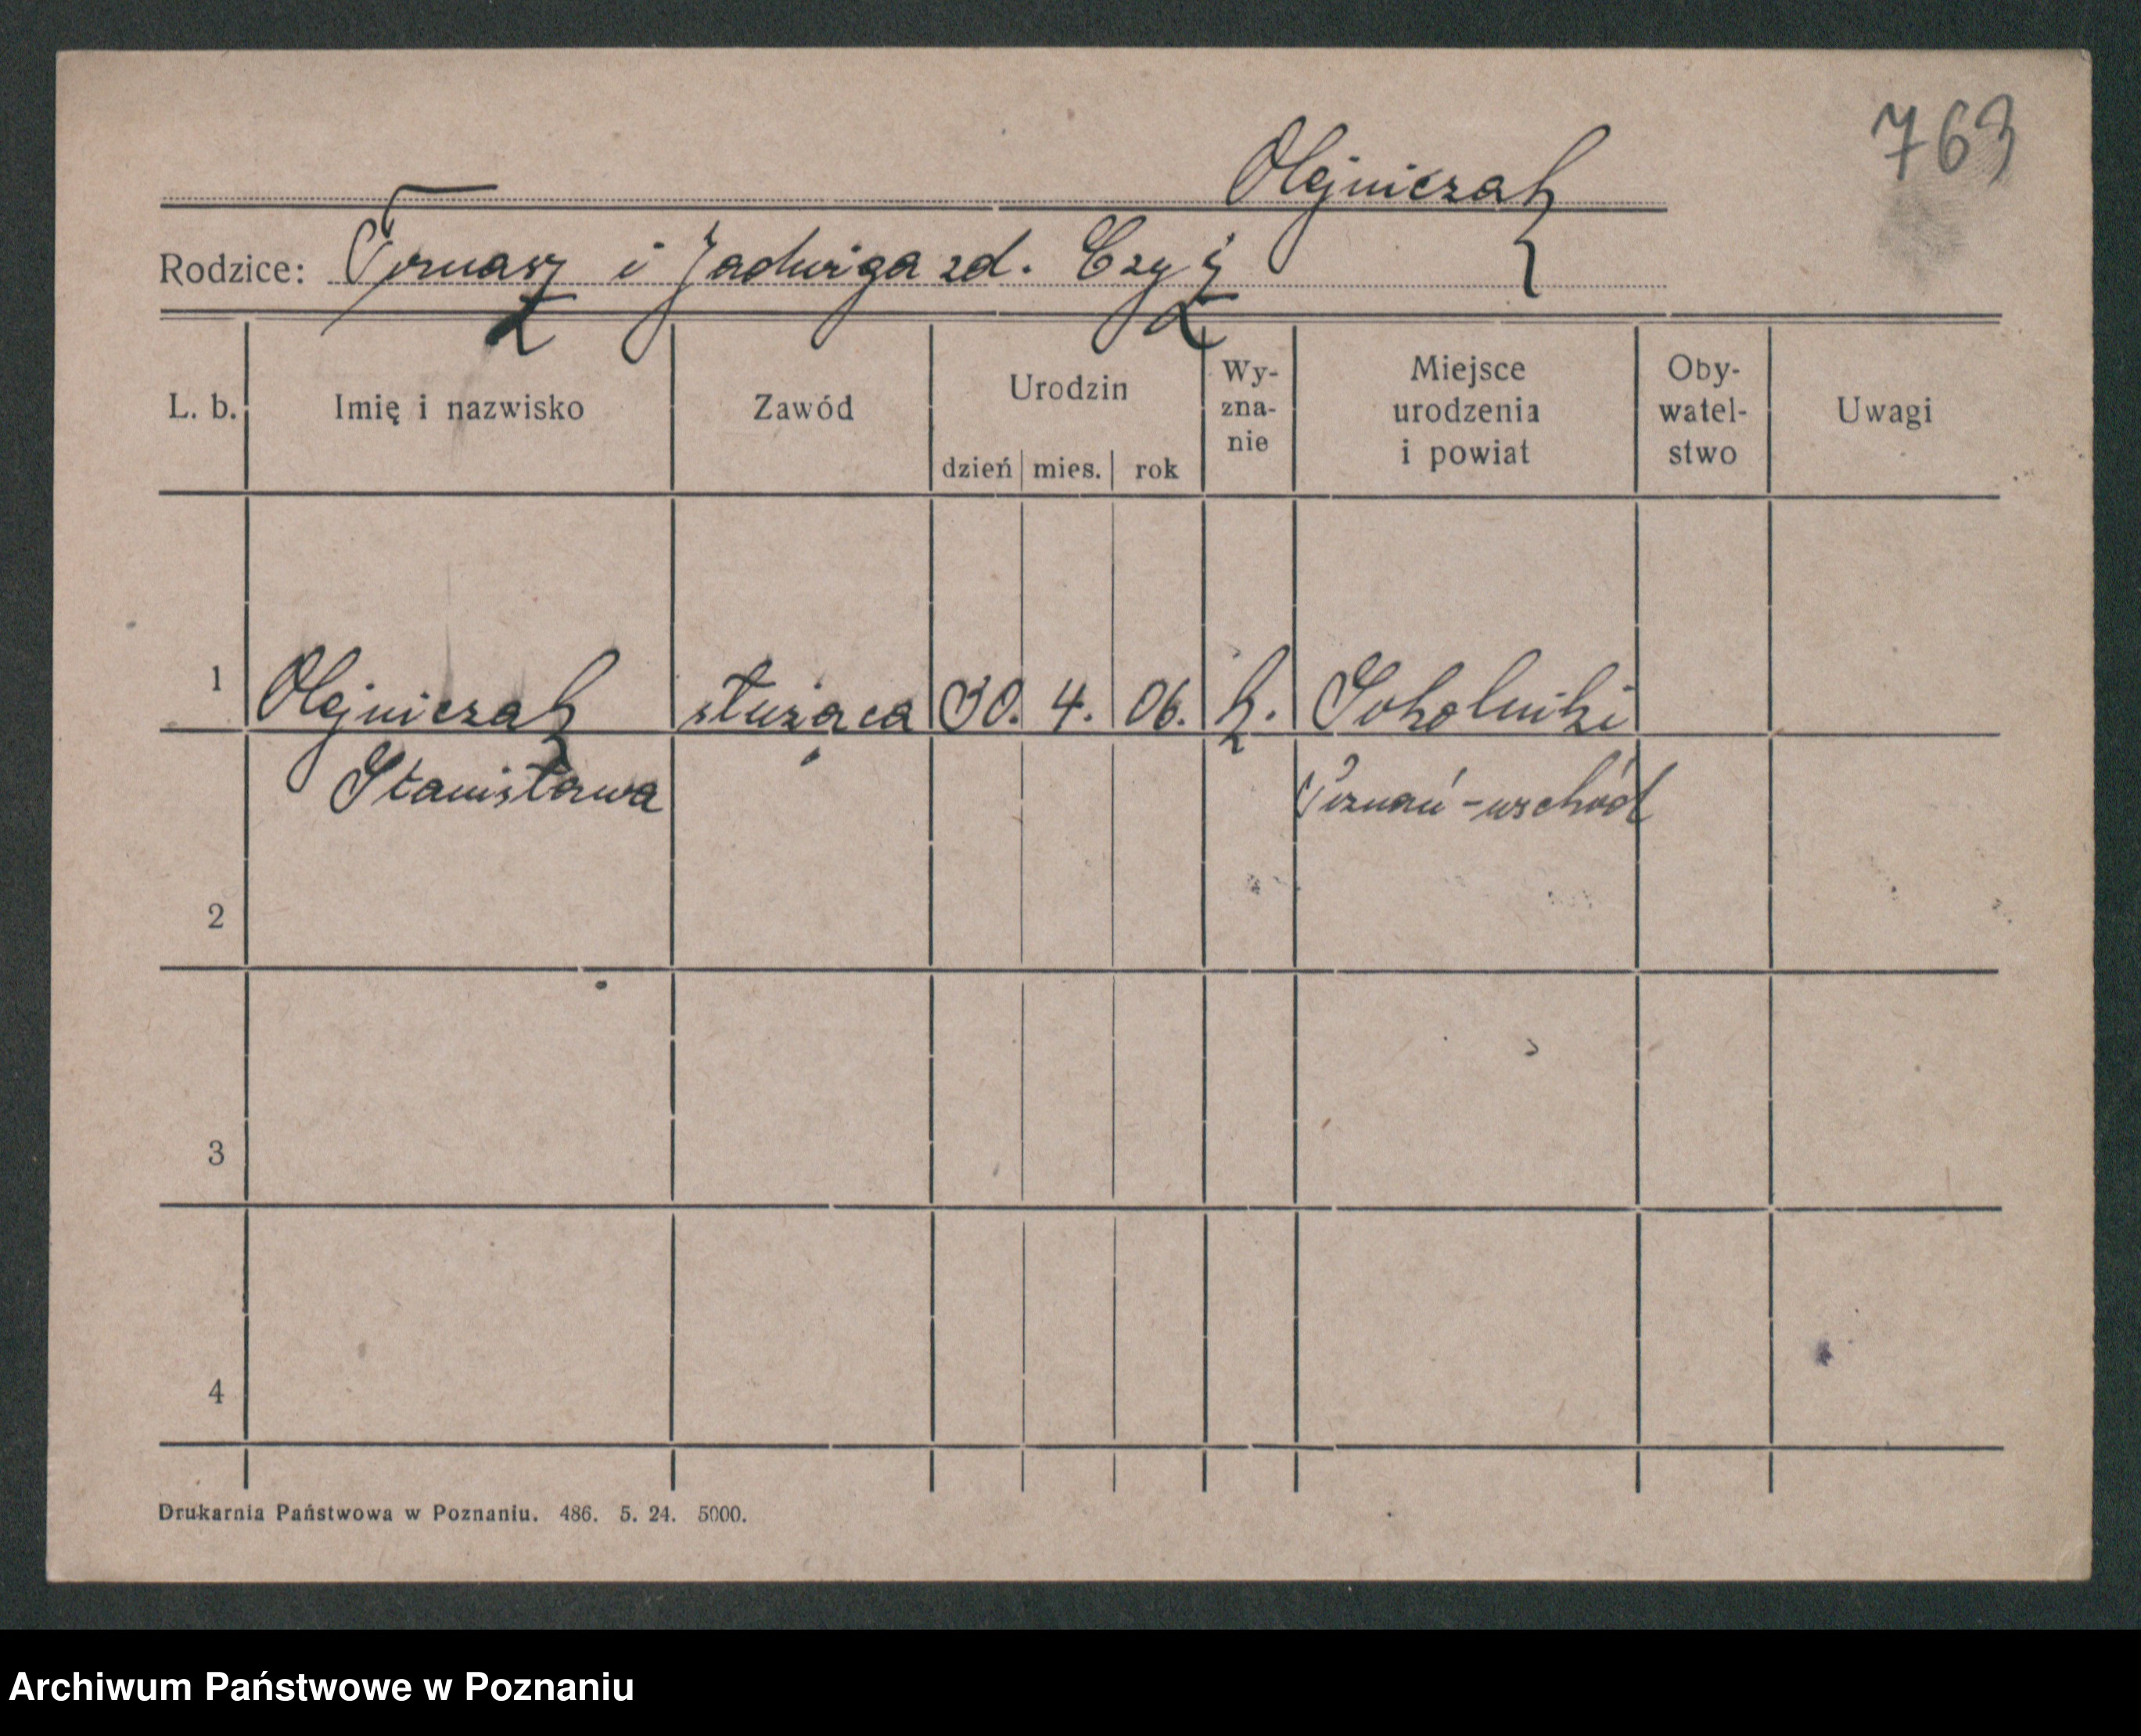 763
Olejniczak
Rodzice: Tomasz i Jadwiga zd. Czyż
L. b. Imię i nazwisko Zawód Urodzin dzień mies. rok Wy-zna-nie Miejsce urodzenia i powiat Oby-watel-stwo Uwagi
1 Olejniczak służąca 30. 4. 06. k. Sokolniki
Stanisława Poznań-wschód
2
3
4
Drukarnia Państwowa w Poznaniu. 486. 5. 24. 5000.
Archiwum Państwowe w Poznaniu